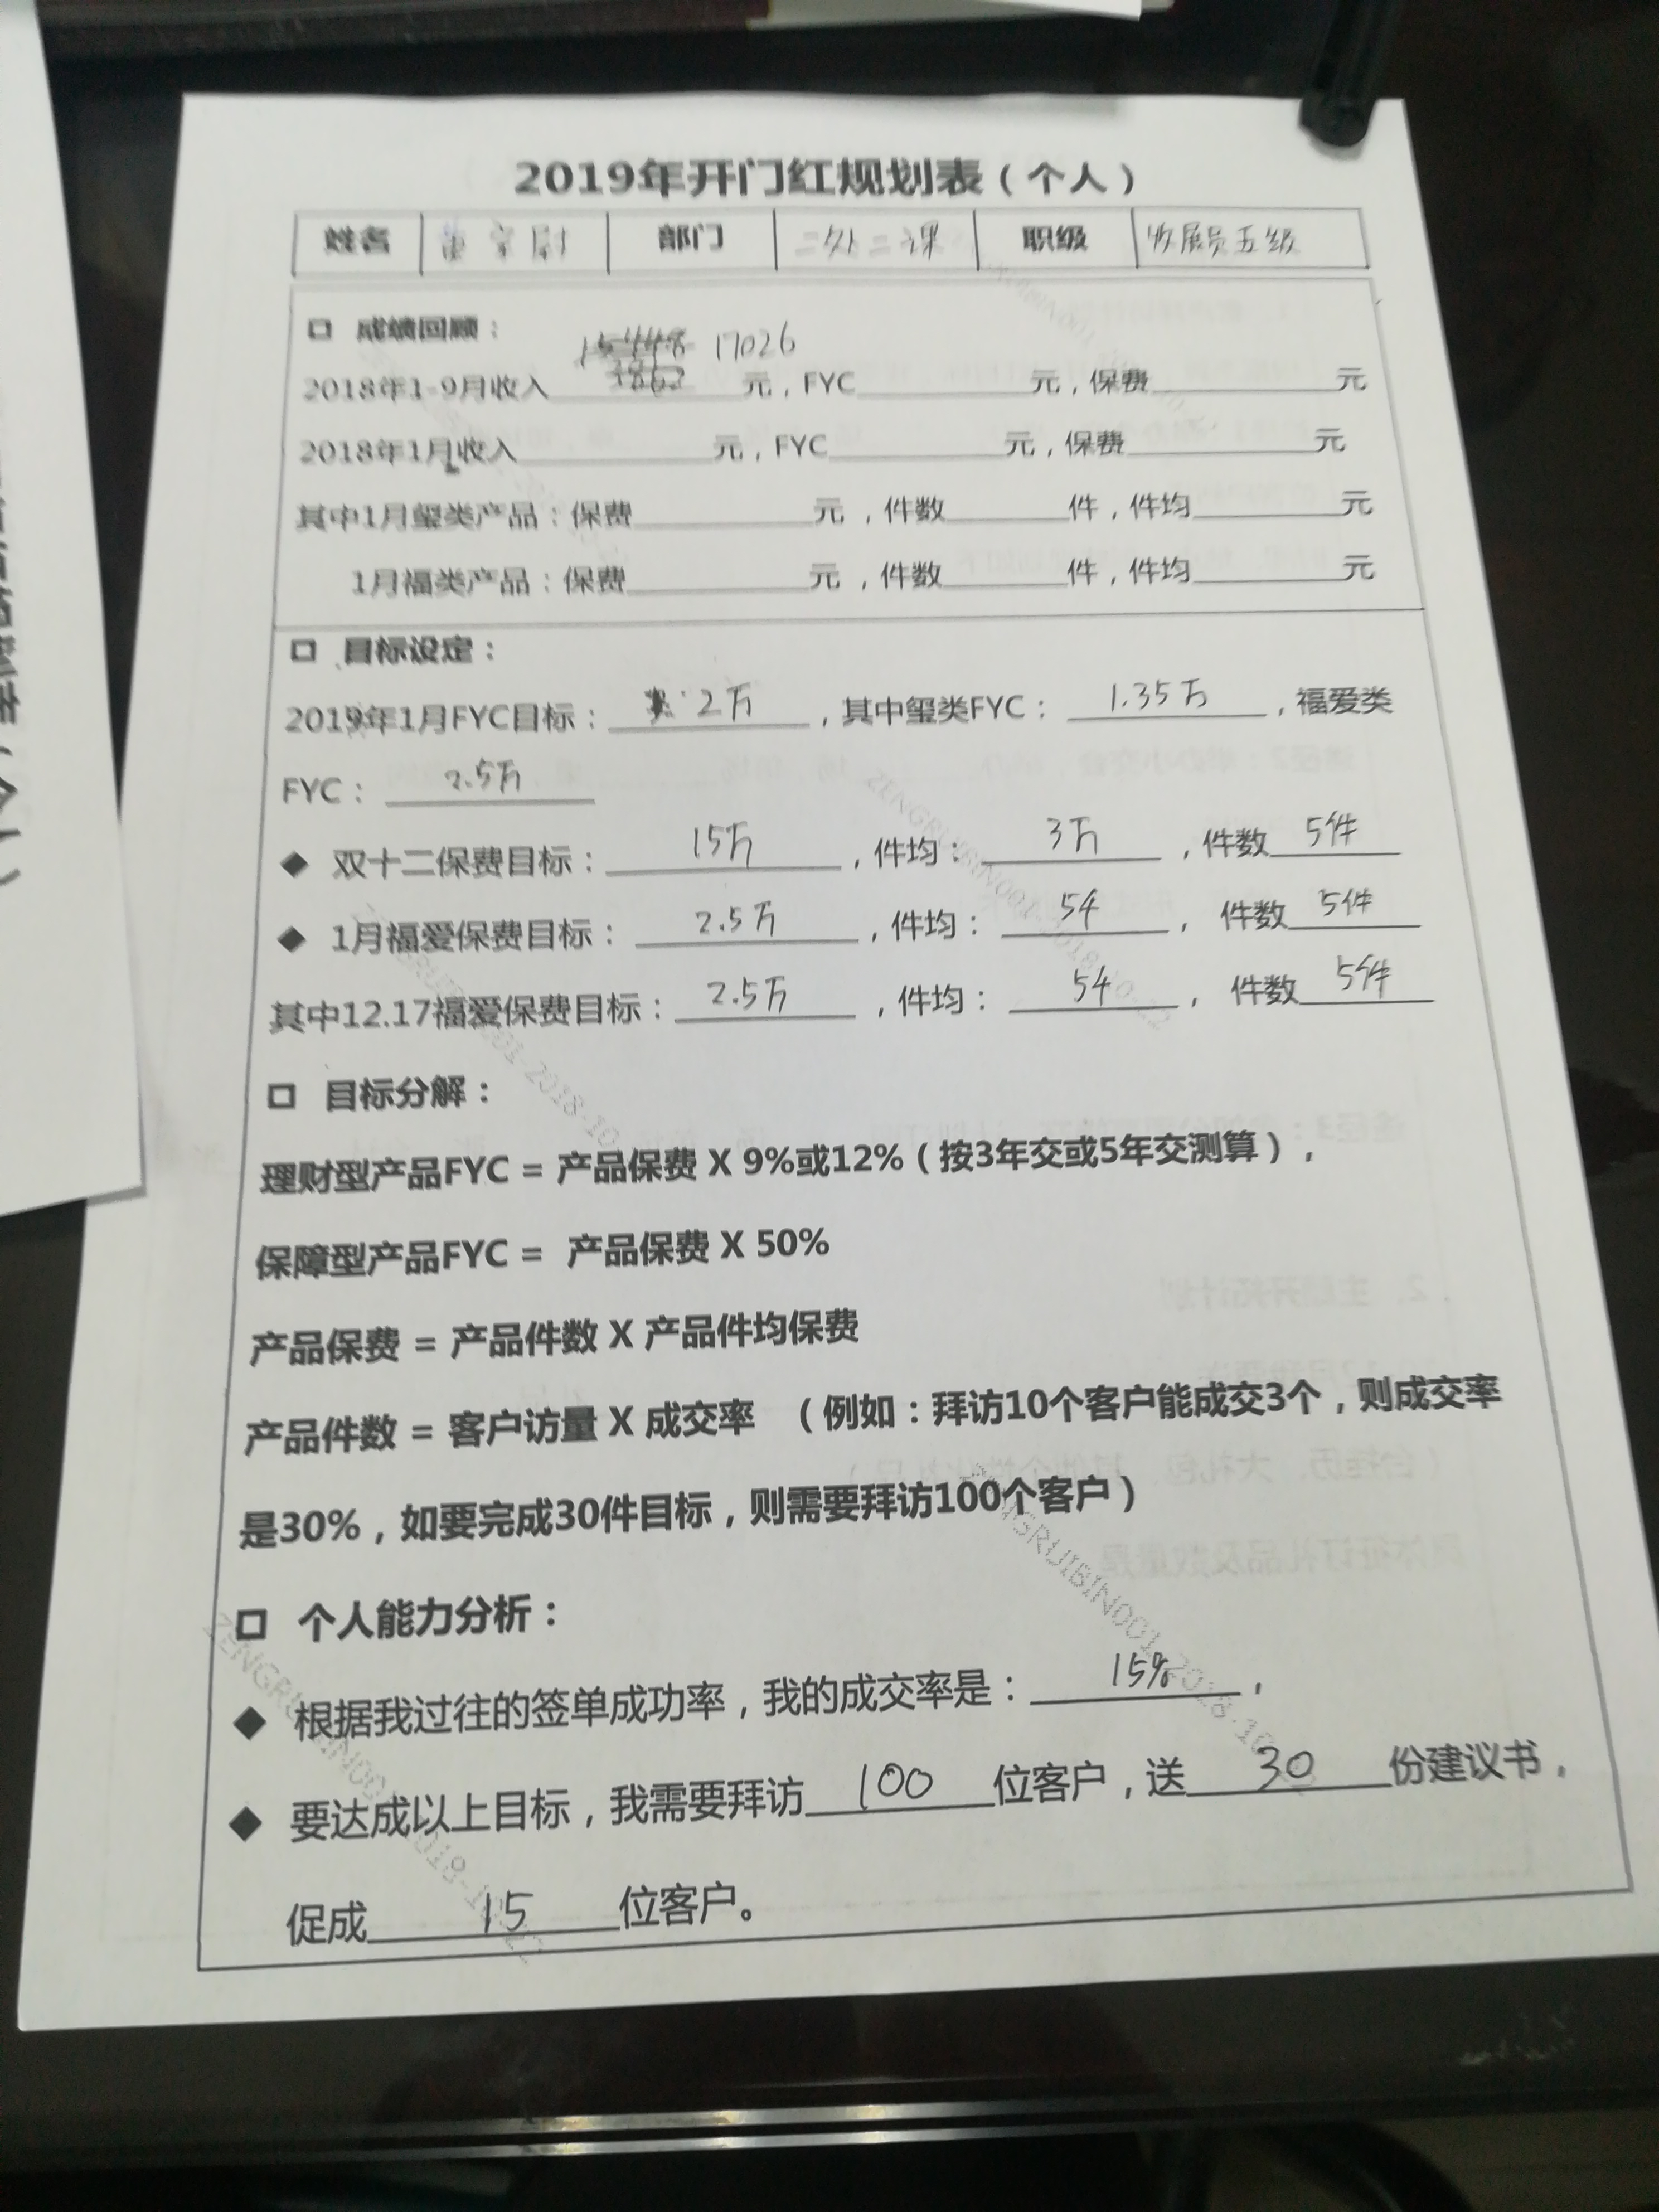 2019年开门红规划表（个人）
姓名 部门 二处二课 职级 收展员五级
□ 成绩回顾：
17026
2018年1-9月收入________元，FYC________元，保费________元
2018年1月收入________元，FYC________元，保费________元
其中1月玺类产品：保费________元，件数______件，件均______元
1月福类产品：保费________元，件数______件，件均______元
□ 目标设定：
2019年1月FYC目标：2万，其中玺类FYC：1.35万，福爱类
FYC：2.5万
◆ 双十二保费目标：15万，件均：3万，件数5件
◆ 1月福爱保费目标：2.5万，件均：54，件数5件
其中12.17福爱保费目标：2.5万，件均：54，件数5件
□ 目标分解：
理财型产品FYC = 产品保费 X 9%或12%（按3年交或5年交测算），
保障型产品FYC = 产品保费 X 50%
产品保费 = 产品件数 X 产品件均保费
产品件数 = 客户访量 X 成交率 （例如：拜访10个客户能成交3个，则成交率
是30%，如要完成30件目标，则需要拜访100个客户）
□ 个人能力分析：
◆ 根据我过往的签单成功率，我的成交率是：15%，
◆ 要达成以上目标，我需要拜访100位客户，送30份建议书，
促成15位客户。